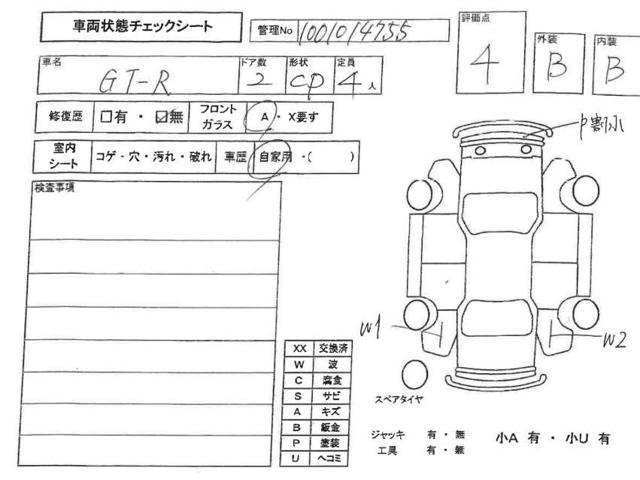 車両状態チェックシート
管理No 1001014755
評価点 4
外装 B
内装 B
車名 GT-R
ドア数 2
形状 CP
定員 4人
修復歴 □有・☑無
フロントガラス A・X要す
室内シート コゲ・穴・汚れ・破れ
車歴 自家用・( )
検査事項
P割小
W1
W2
XX 交換済
W 波
C 腐食
S サビ
A キズ
B 鈑金
P 塗装
U ヘコミ
スペアタイヤ
ジャッキ 有・無
工具 有・無
小A 有・小U 有